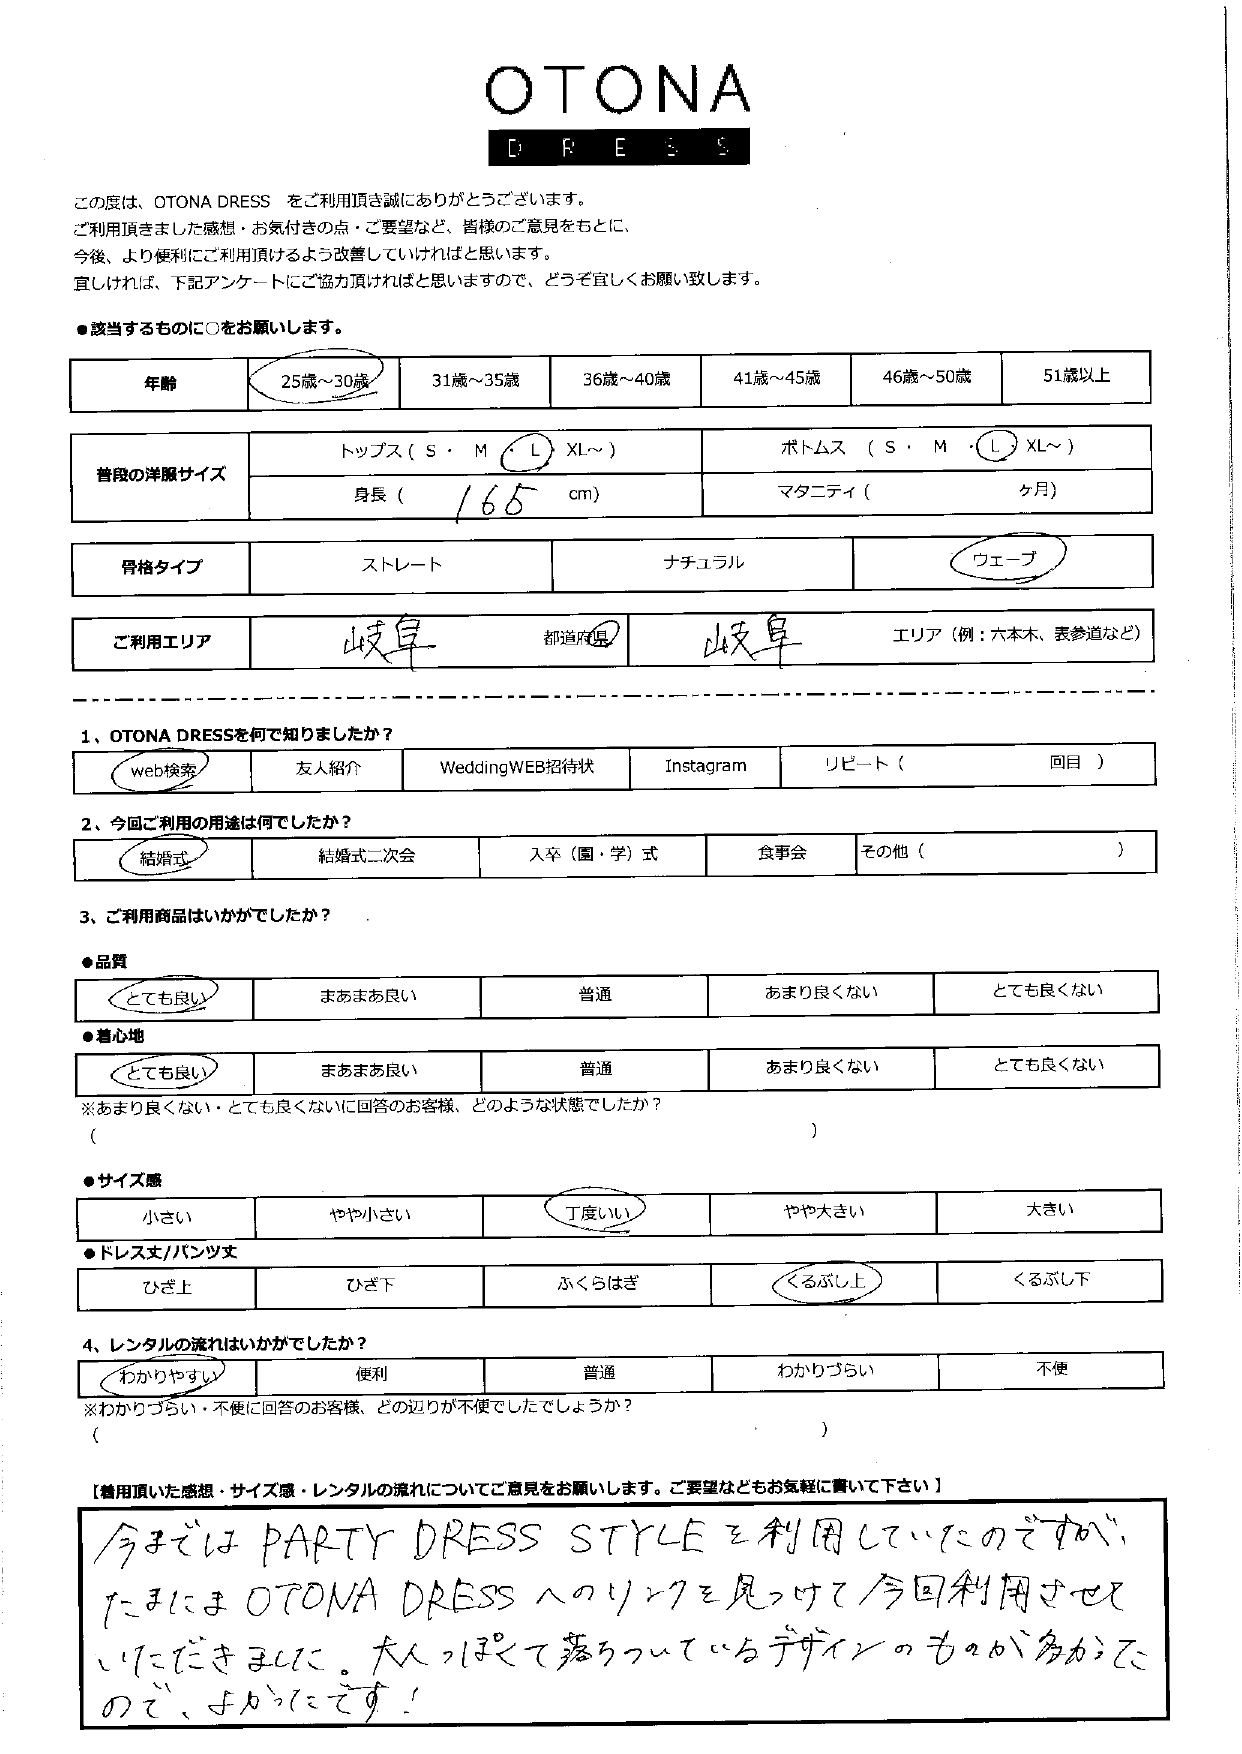 OTONA
DRESS
この度は、OTONA DRESS をご利用頂き誠にありがとうございます。
ご利用頂きました感想・お気付きの点・ご要望など、皆様のご意見をもとに、
今後、より便利にご利用頂けるよう改善していければと思います。
宜しければ、下記アンケートにご協力頂ければと思いますので、どうぞ宜しくお願い致します。
●該当するものに○をお願いします。
年齢 25歳～30歳 31歳～35歳 36歳～40歳 41歳～45歳 46歳～50歳 51歳以上
普段の洋服サイズ
トップス ( S ・ M ・ L ・ XL～ ) ボトムス ( S ・ M ・ L ・ XL～ )
身長 ( 165 cm) マタニティ ( ヶ月)
骨格タイプ ストレート ナチュラル ウェーブ
ご利用エリア 岐阜 都道府県 岐阜 エリア（例：六本木、表参道など）
1、OTONA DRESSを何で知りましたか？
web検索 友人紹介 WeddingWEB招待状 Instagram リピート（ 回目 ）
2、今回ご利用の用途は何でしたか？
結婚式 結婚式二次会 入卒（園・学）式 食事会 その他（ ）
3、ご利用商品はいかがでしたか？
●品質
とても良い まあまあ良い 普通 あまり良くない とても良くない
●着心地
とても良い まあまあ良い 普通 あまり良くない とても良くない
※あまり良くない・とても良くないに回答のお客様、どのような状態でしたか？
( )
●サイズ感
小さい やや小さい 丁度いい やや大きい 大きい
●ドレス丈/パンツ丈
ひざ上 ひざ下 ふくらはぎ くるぶし上 くるぶし下
4、レンタルの流れはいかがでしたか？
わかりやすい 便利 普通 わかりづらい 不便
※わかりづらい・不便に回答のお客様、どの辺りが不便でしたでしょうか？
( )
【着用頂いた感想・サイズ感・レンタルの流れについてご意見をお願いします。ご要望などもお気軽に書いて下さい】
今までは PARTY DRESS STYLE を利用していたのですが、
たまたま OTONA DRESS へのリンクを見つけて今回利用させて
いただきました。大人っぽくて落ちついているデザインのものが多かった
ので、よかったです！